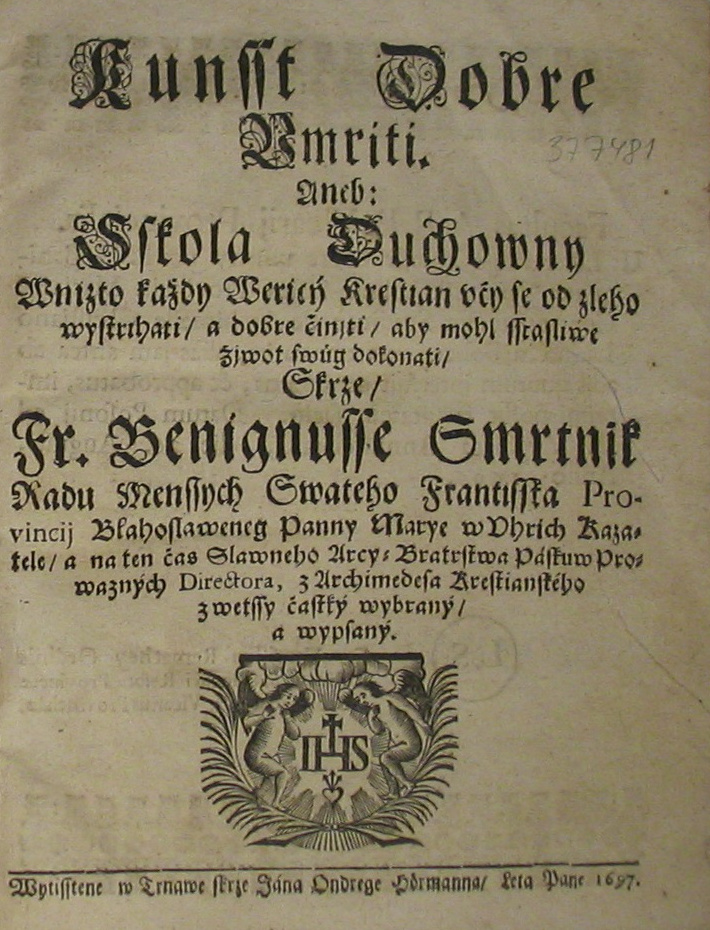 Kunsst Dobre
Vmriti.
Aneb:
Sskola Duchowny
Wnizto każdy Wericý Krestian včy se od zleho
wystrihati/ a dobre činiti/ aby mohl sstasliwe
żiwot swúg dokonati/
Skrze/
Fr. Benignusse Smrtnik
Radu Menssych Swateho Frantisska Pro-
vincij Blahoslaweneg Panny Marye w Vhrich Kaza-
tele/ a na ten čas Slawneho Arcy-Bratrstwa Páskuw Pro-
wazných Directora, z Archimedesa Krestianského
z wetssy častký wybraný/
a wypsaný.
377481
IHS
Wytisstene w Trnawe skrze Jána Ondrege Hörmanna/ Leta Pane 1697.